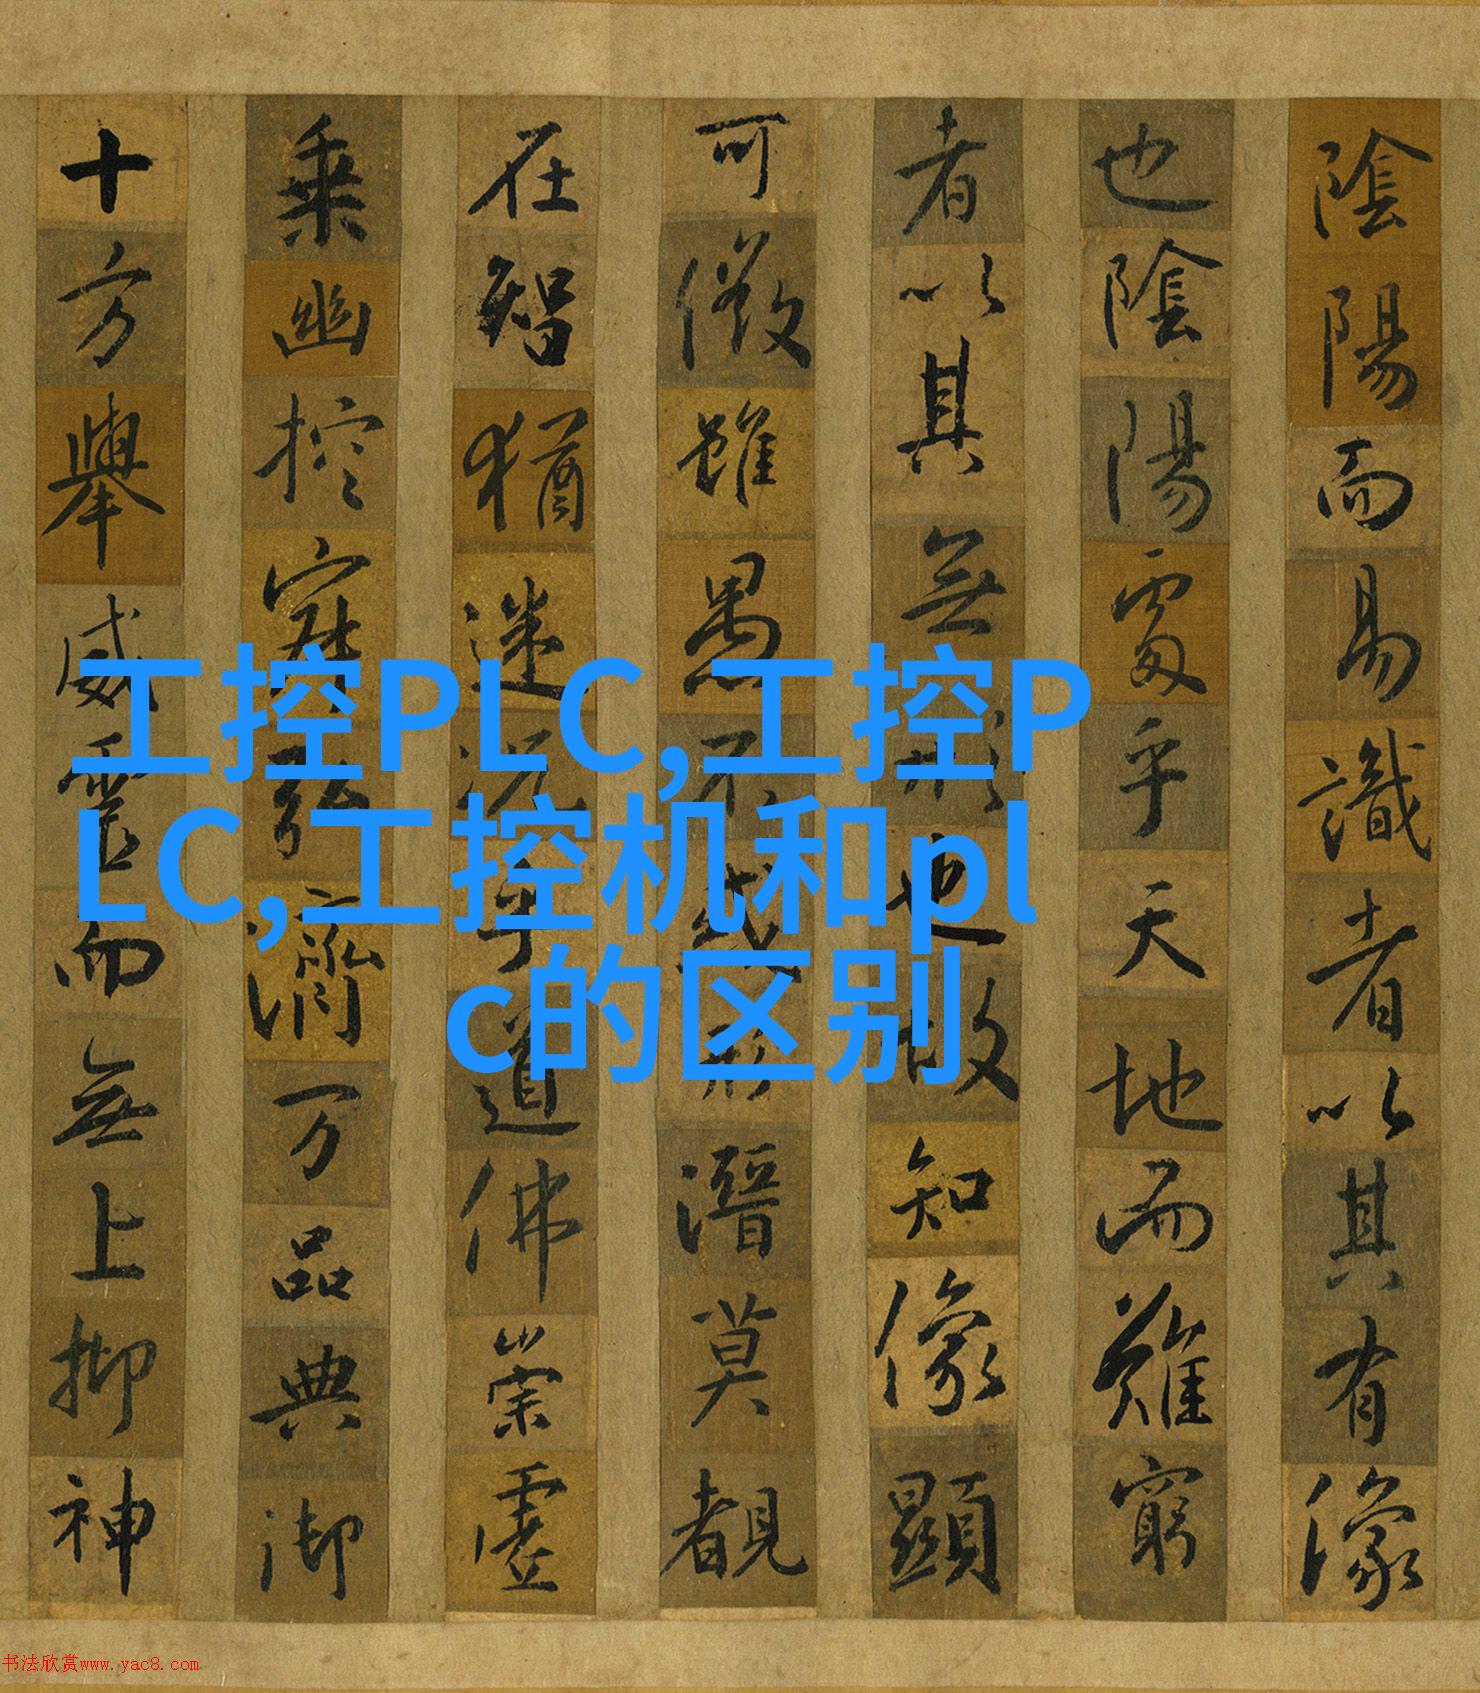 陰陽而易識者以其有像
也陰陽處乎天地而難窮
者以其無形也故知像顯
可徵雖愚不惑形潛莫覩
在智猶迷况乎道佛崇虛
乗幽控寂弘濟万品典御
十方舉威靈而無上抑神
工控PLC,工控P
LC,工控机和pl
c的区别
书法欣赏www.yac8.com